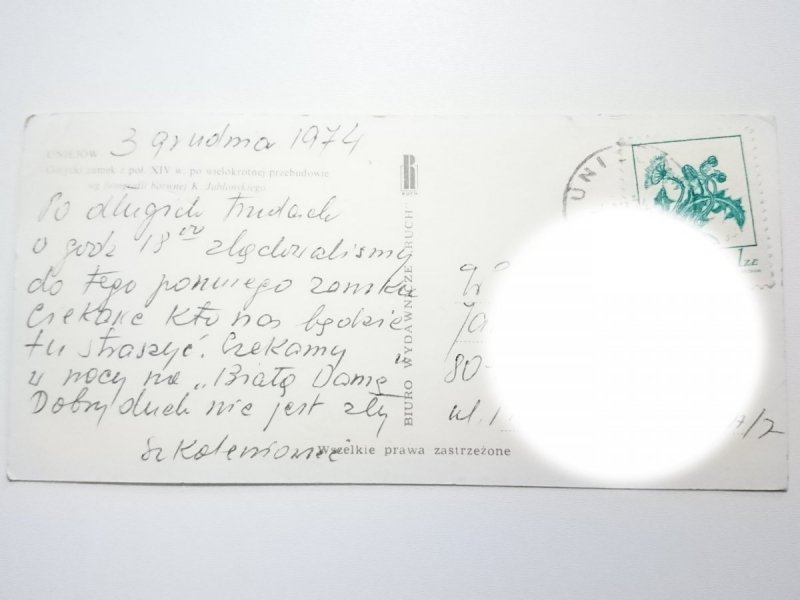 3 grudnia 1974
UNIEJÓW
Gotycki zamek z poł. XIV w. po wielokrotnej przebudowie
wg fotografii barwnej K. Jabłońskiego
Po długich trudach
o godz 18 00 zlądowaliśmy
do tego ponurego zamku
Czekane kto nas będzie
tu straszyć. Czekamy
w nocy na „Białą Damę"
Dobry duch nie jest zły
Szkoleniowcy
BIURO WYDAWNICZE RUCH
Wszelkie prawa zastrzeżone
UNI
1 ZŁ
80-
ul.
/2